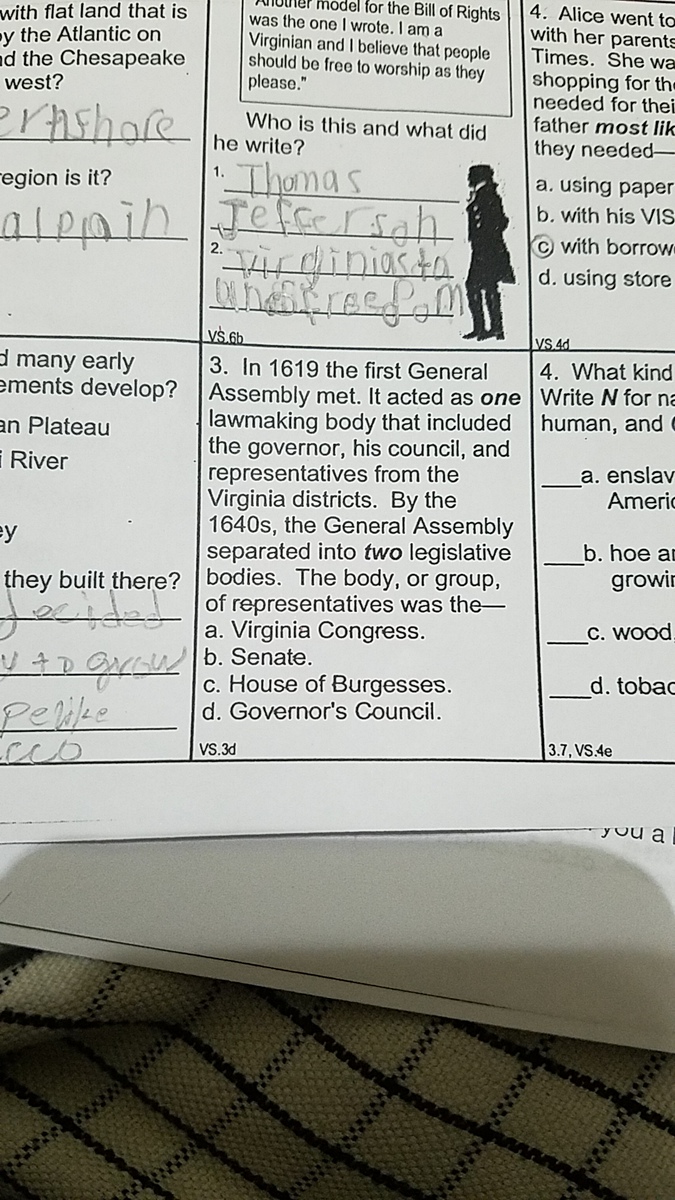 with flat land that is
by the Atlantic on
nd the Chesapeake
west?
ernshore
region is it?
alppin
Another model for the Bill of Rights
was the one I wrote. I am a
Virginian and I believe that people
should be free to worship as they
please."
Who is this and what did
he write?
1. Thomas
Jefferson
2. Virginiasta
freedom
VS.6b
4. Alice went to
with her parents
Times. She wa
shopping for the
needed for thei
father most lik
they needed—
a. using paper
b. with his VIS
c with borrow
d. using store
VS.4d
d many early
ements develop?
an Plateau
i River
ey
they built there?
decided
y to grow
pelike
cco
3. In 1619 the first General
Assembly met. It acted as one
lawmaking body that included
the governor, his council, and
representatives from the
Virginia districts. By the
1640s, the General Assembly
separated into two legislative
bodies. The body, or group,
of representatives was the—
a. Virginia Congress.
b. Senate.
c. House of Burgesses.
d. Governor's Council.
VS.3d
4. What kind
Write N for na
human, and C
___a. enslav
Americ
___b. hoe an
growin
___c. wood,
___d. tobac
3.7, VS.4e
you a